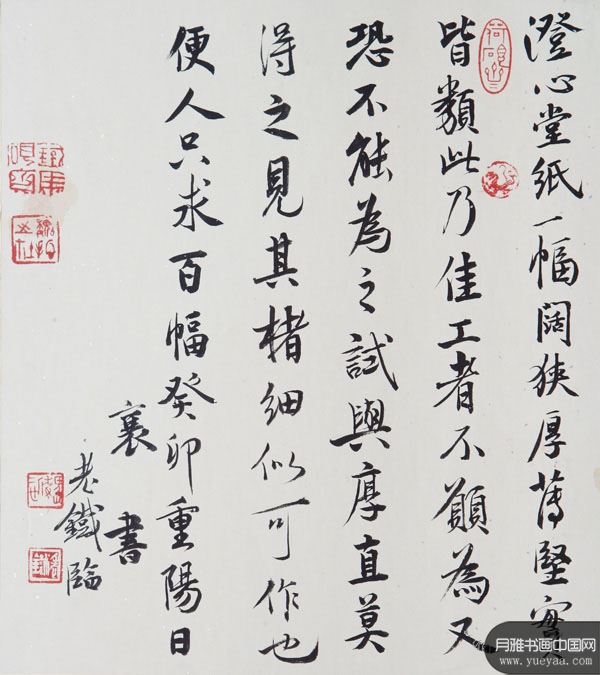 澄心堂紙一幅闊狹厚薄堅實
皆類此乃佳工者不願為又
恐不能為之試與厚直莫
得之見其楮細似可作也
便人只求百幅癸卯重陽日
襄書
老鐵臨
月雅书画中国网
www.yueyaa.com